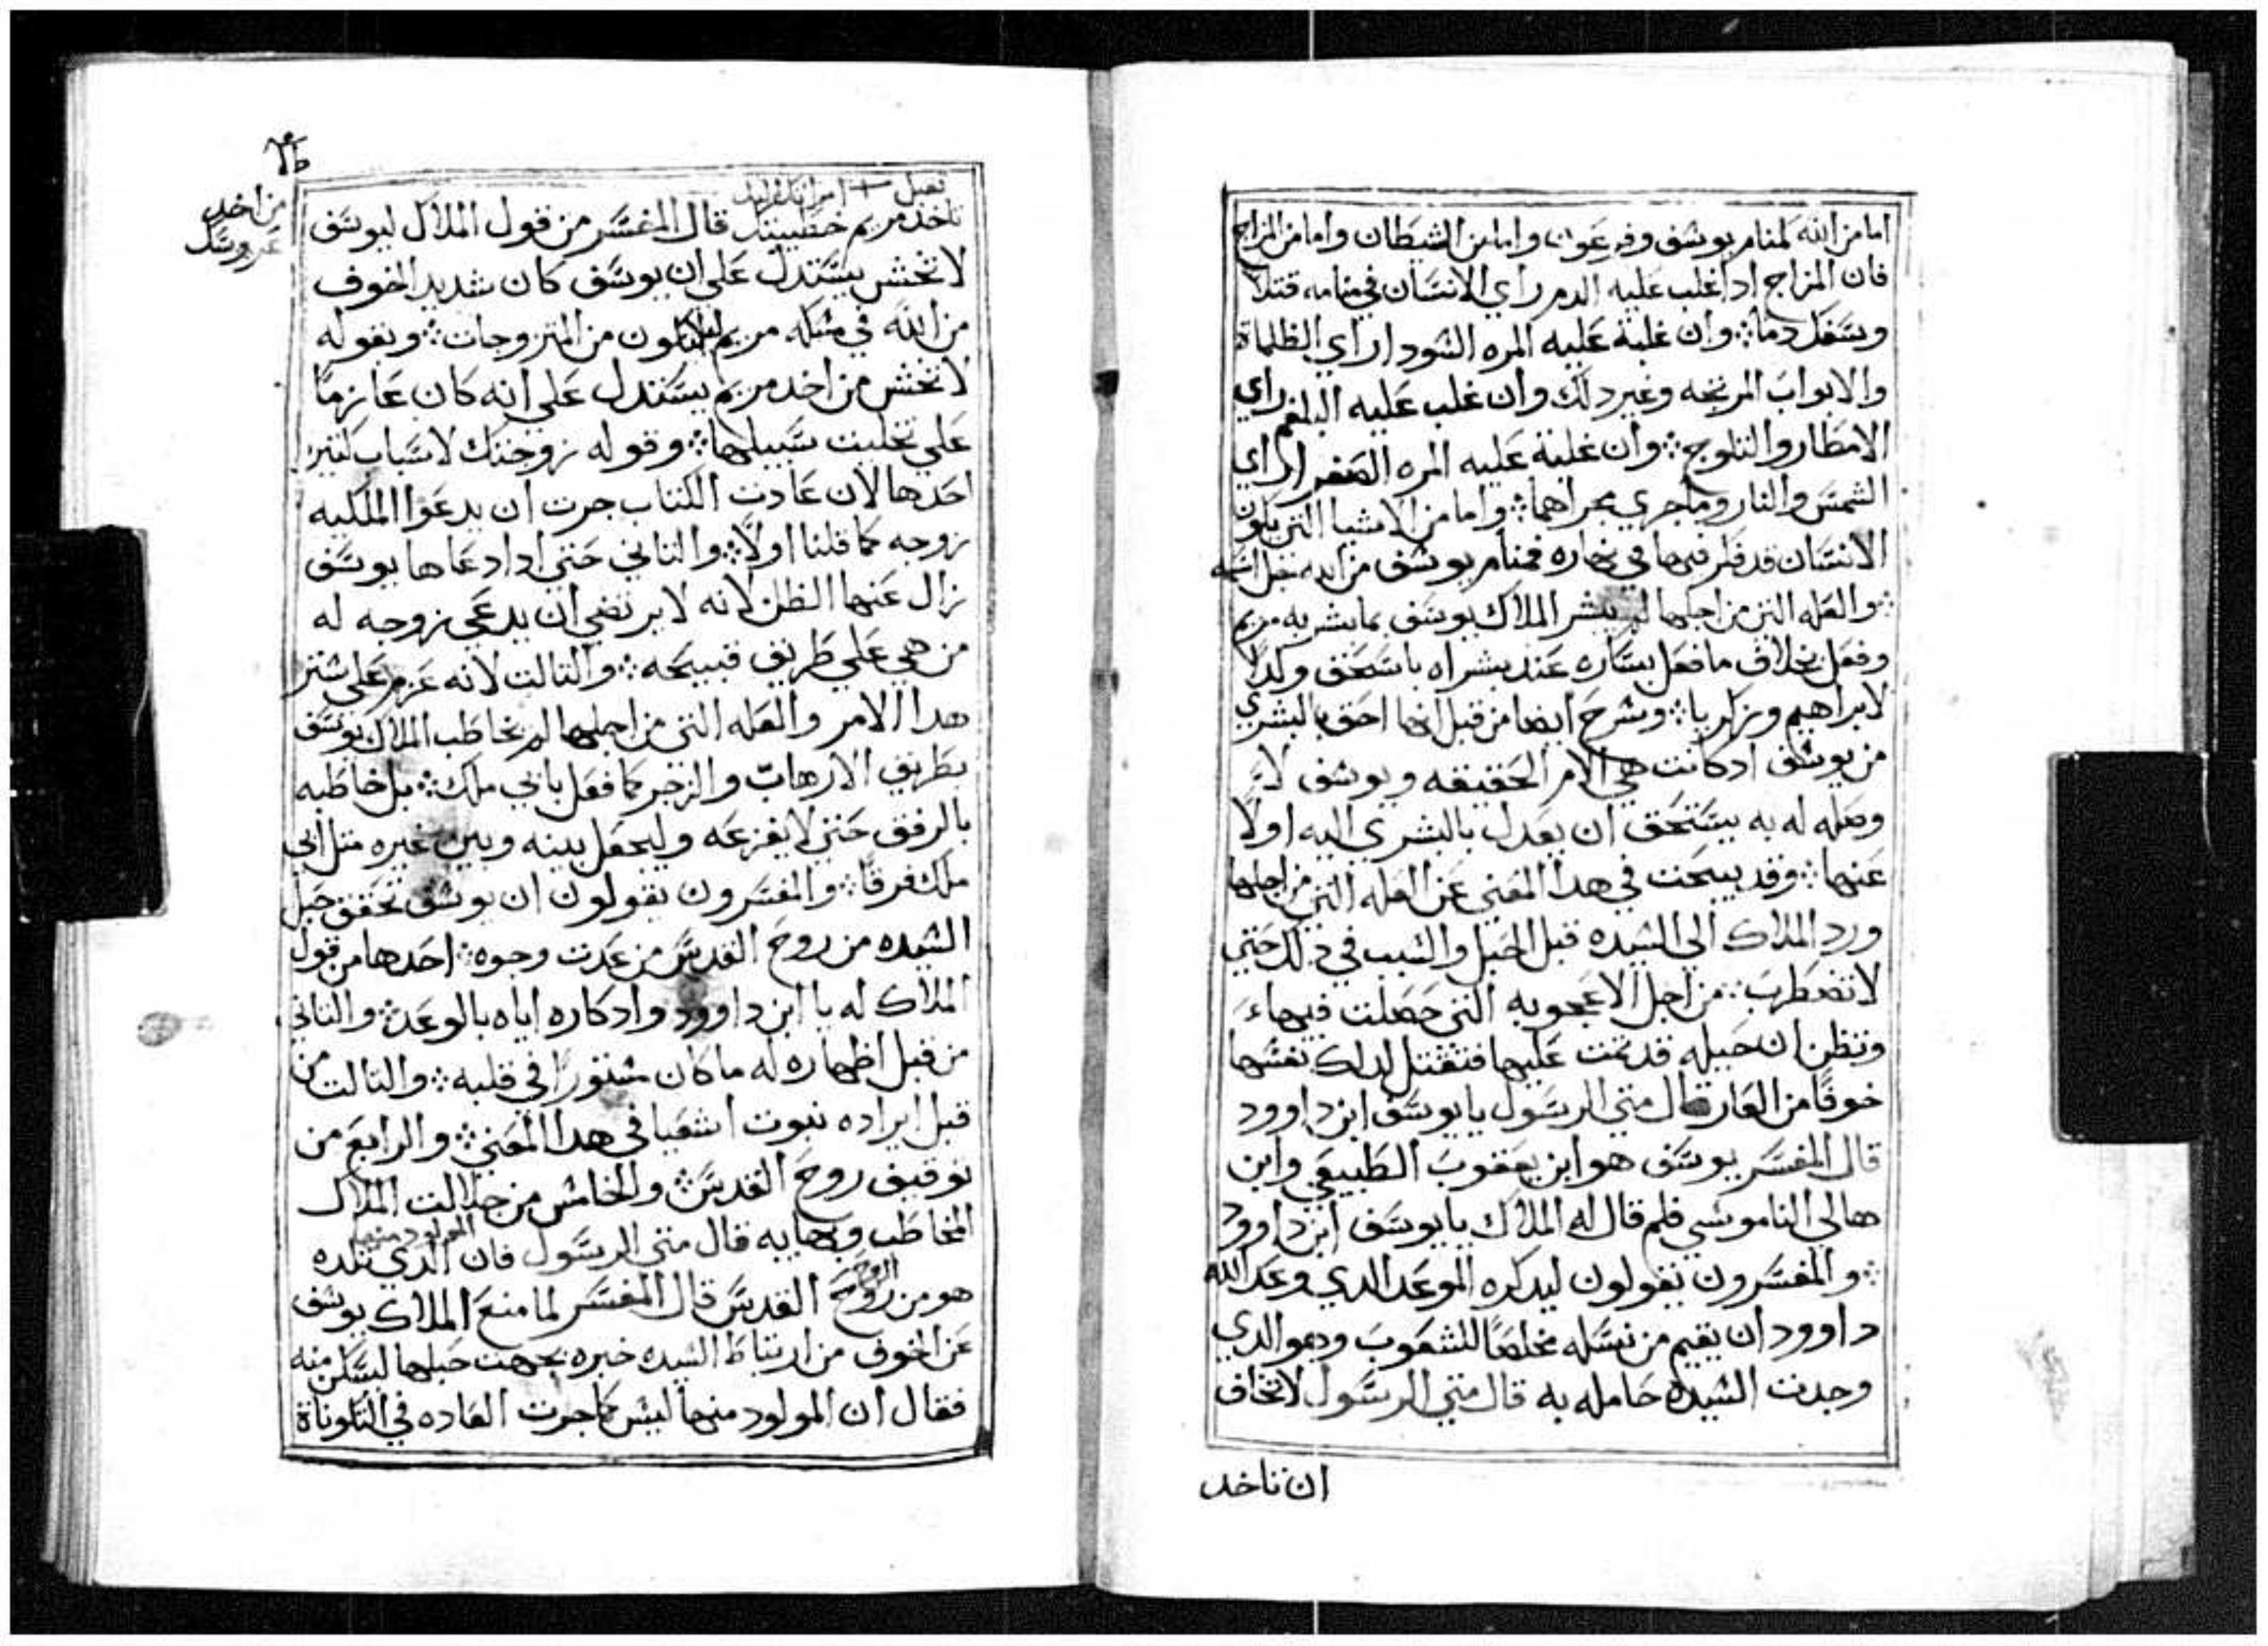 اما من الله كمنام يوسف وفرعون واما من الشيطان واما من المزاج
فان المزاج ادا غلب عليه الدم راي الانسان في منامه قتلا
وسفك دما ܀ وان غلبة عليه المره السودا راي الظلماة
والابواب المرتجه وغير دلك وان غلب عليه البلغم راي
الامطار والتلوج ܀ وان غلبة عليه المره الصفرا راي
الشمس والنار وما جري مجراهما ܀ واما من الاشيا التي يكون
الانسان قد فكر فيها في نهاره فمنام يوسف من الله
܀ والعله التي من اجلها لم يبشر الملاك يوسف بما بشر به مريم
وفعل بخلاف ما فعل بساره عند بشراه باسحق ولدا
لابراهيم وزكريا ܀ ونشرح ايضا من قبل انها احق بالبشري
من يوسف ادكانت هي الام الحقيقه ويوسف لا
وصله له به يستحق ان يعدل بالبشري اليه اولا
عنها ܀ وقد يبحت في هدا المعني عن العله التي من اجلها
ورد الملاك الي السيده قبل الحبل والسبب في دلك حتي
لا تضطرب ܀ من اجل الاعجوبه التي حصلت فيهاء
وتظن ان حيله قد تمت عليها فتقتل لدلك نفسها
خوفا من العار قال متي الرسول يا يوسف ابن داوود
قال المفسر يوسف هو ابن يعقوب الطبيعي وابن
هالي الناموسي فلم قال له الملاك يا يوسف ابن داوود
܀ والمفسرون يقولون ليدكره الموعد الدي وعد الله
داوود ان يقيم من نسله مخلصا للشعوب وهو الدي
وجدت السيده حامله به قال متي الرسول لا تخاف
ان تاخد
من اخد
عروسك
تقبل + امراتك
تاخد مريم خطيبتك قال المفسر من قول الملاك ليوسف
لا تخش يستدل علي ان يوسف كان شديد الخوف
من الله في مسكه مريم ليلا تكون من المتزوجات ܀ وبقوله
لا تخش من اخد مريم يستدل علي انه كان عازما
علي تخليت سبيلها ܀ وقوله زوجتك لاسباب كتير
احدها لان عادت الكتاب جرت ان يدعوا الملكيه
زوجه كما قلنا اولا ܀ والتاني حتي ادا دعاها يوسف
زال عنها الظن لانه لا يرتضي ان يدعي زوجه له
من هي علي طريق قبيحه ܀ والتالت لانه عزم علي ستر
هدا الامر والعله التي من اجلها لم يخاطب الملاك يوسف
بطريق الارهاب والزجر كما فعل بابي ملك ܀ بل خاطبه
بالرفق حتي لا يفزعه وليجعل بينه وبين غيره متل ابي
ملك فرقا ܀ والمفسرون يقولون ان يوسف تحقق حبل
السيده من روح القدس من عدت وجوه ܀ احدها من قول
الملاك له يا ابن داوود وادكاره اياه بالوعد ܀ والتاني
من قبل اظهاره له ما كان مستورا في قلبه ܀ والتالت من
قبل ايراده نبوت اشعيا في هدا المعني ܀ والرابع من
توفيق روح القدس ܀ والخامس من جلالت الملاك
المولود منها
المخاطب وبهايه قال متي الرسول فان الدي تلده
الروح
هو من روح القدس قال المفسر لما منع الملاك يوسف
عن الخوف من ارتباط السيده خبره بجهت حبلها ليسكن منه
فقال ان المولود منها ليس كما جرت العاده في التكوناة